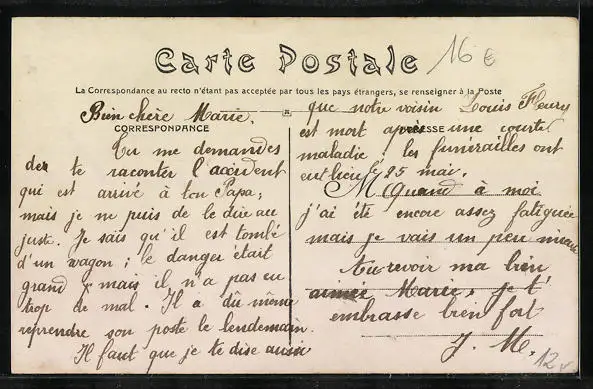 Carte Postale
16 €
La Correspondance au recto n'étant pas acceptée par tous les pays étrangers, se renseigner à la Poste
CORRESPONDANCE
Bien chère Marie,
Tu me demandes
de te raconter l'accident
qui est arrivé à ton Papa;
mais je ne puis de le dire au
juste. Je sais qu'il est tombé
d'un wagon; le danger était
grand, mais il n'a pas eu
trop de mal. Il a dû même
reprendre son poste le lendemain.
Il faut que je te dise aussi
ADRESSE
que notre voisin Louis Fleury
est mort après une courte
maladie; les funérailles ont
eu lieu le 25 mai.
M Quand à moi
j'ai été encore assez fatiguée
mais je vais un peu mieux
Au revoir ma bien
aimée Marie, je t'
embrasse bien fort
J. M.
12